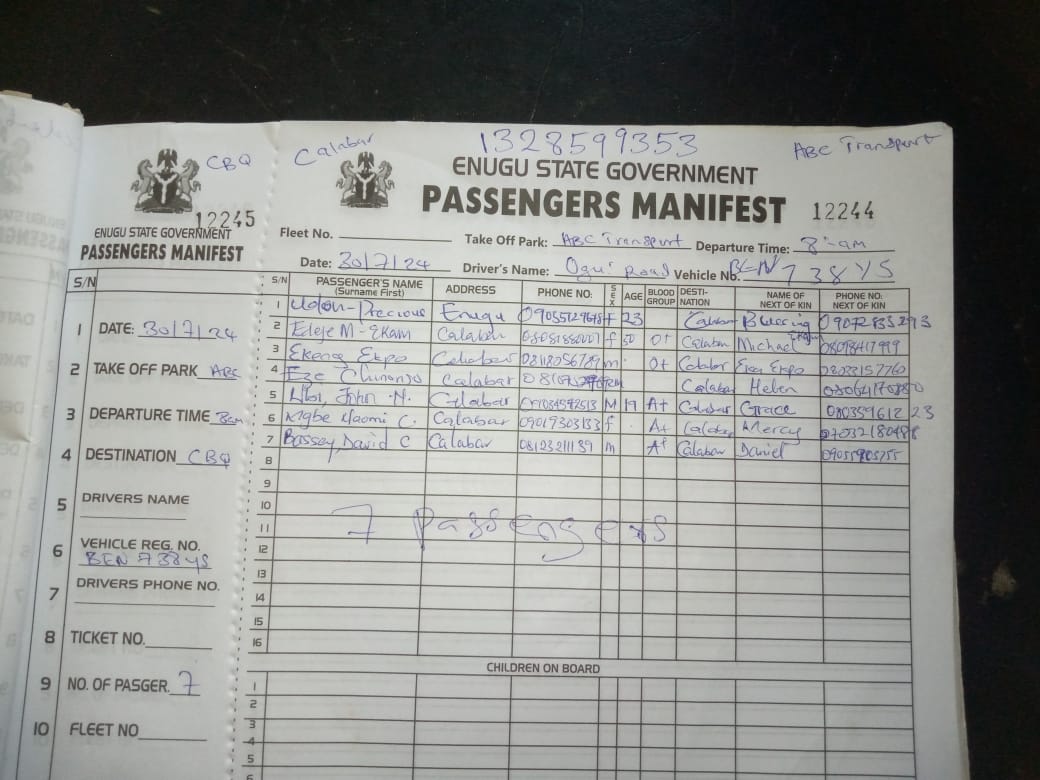 CBQ
12245
ENUGU STATE GOVERNMENT
PASSENGERS MANIFEST
S/N
1 DATE: 30/7/24
2 TAKE OFF PARK ABC
3 DEPARTURE TIME 8am
4 DESTINATION CBQ
5 DRIVERS NAME
6 VEHICLE REG. NO.
BEN 738YS
7 DRIVERS PHONE NO.
8 TICKET NO.
9 NO. OF PASGER. 7
10 FLEET NO
Calabar 1328599353 ABC Transport
ENUGU STATE GOVERNMENT
PASSENGERS MANIFEST 12244
Fleet No. Take Off Park: ABC Transport Departure Time: 8:-am
Date: 30/7/24 Driver's Name: Ogui Road Vehicle No. BEN 738YS
S/N PASSENGER'S NAME (Surname First) ADDRESS PHONE NO: SEX AGE BLOOD GROUP DESTI-NATION NAME OF NEXT OF KIN PHONE NO: NEXT OF KIN
1 Udoh-Precious Enugu F 23 Calabar Blessing
2 Edeje M-Ekam Calabar f 50 O+ Calabar Michael
3 Ekeng Ekpo Calabar m O+ Calabar Ekpo
4 Eze Calabar m Calabar Helen
5 John .N. Calabar M 19 A+ Calabar Grace
6 Naomi C. Calabar 09019303133 f A+ Calabar Mercy
7 Bassey, David C Calabar 08123211139 m A+ Calabar Daniel
8
9
10
11 7 Passengers
12
13
14
15
16
CHILDREN ON BOARD
1
2
3
4
5
6